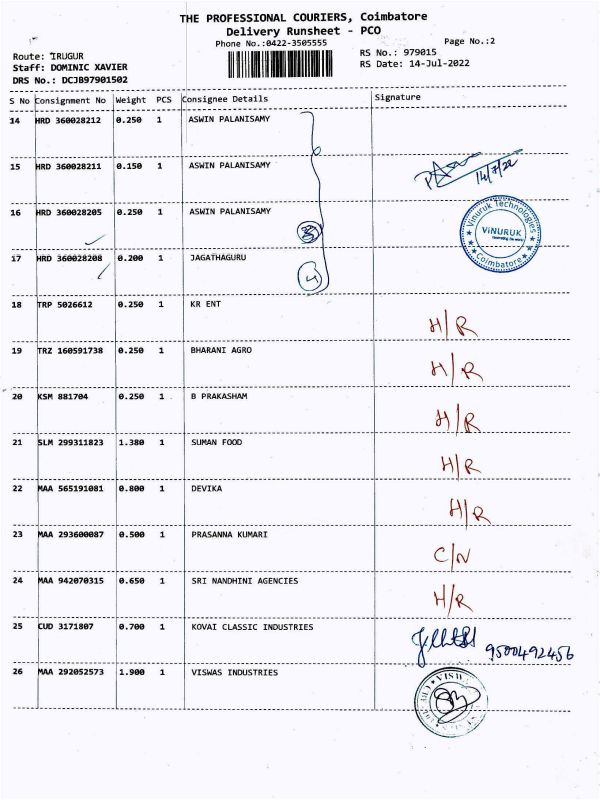 THE PROFESSIONAL COURIERS, Coimbatore
Delivery Runsheet - PCO
Phone No.:0422-3505555
Page No.:2
Route: IRUGUR
RS No.: 979015
Staff: DOMINIC XAVIER
RS Date: 14-Jul-2022
DRS No.: DCJB97901502
S No Consignment No Weight PCS Consignee Details Signature
14 HRD 360028212 0.250 1 ASWIN PALANISAMY
15 HRD 360028211 0.150 1 ASWIN PALANISAMY
14/7/22
16 HRD 360028205 0.250 1 ASWIN PALANISAMY
Vinuruk Technologies
ViNURUK
Coimbatore
3
17 HRD 360028208 0.200 1 JAGATHAGURU
4
18 TRP 5026612 0.250 1 KR ENT
H/R
19 TRZ 160591738 0.250 1 BHARANI AGRO
H/R
20 KSM 881704 0.250 1 B PRAKASHAM
H/R
21 SLM 299311823 1.380 1 SUMAN FOOD
H/R
22 MAA 565191081 0.800 1 DEVIKA
H/R
23 MAA 293600087 0.500 1 PRASANNA KUMARI
C/N
24 MAA 942070315 0.650 1 SRI NANDHINI AGENCIES
H/R
25 CUD 3171807 0.700 1 KOVAI CLASSIC INDUSTRIES
9500492456
26 MAA 292052573 1.900 1 VISWAS INDUSTRIES